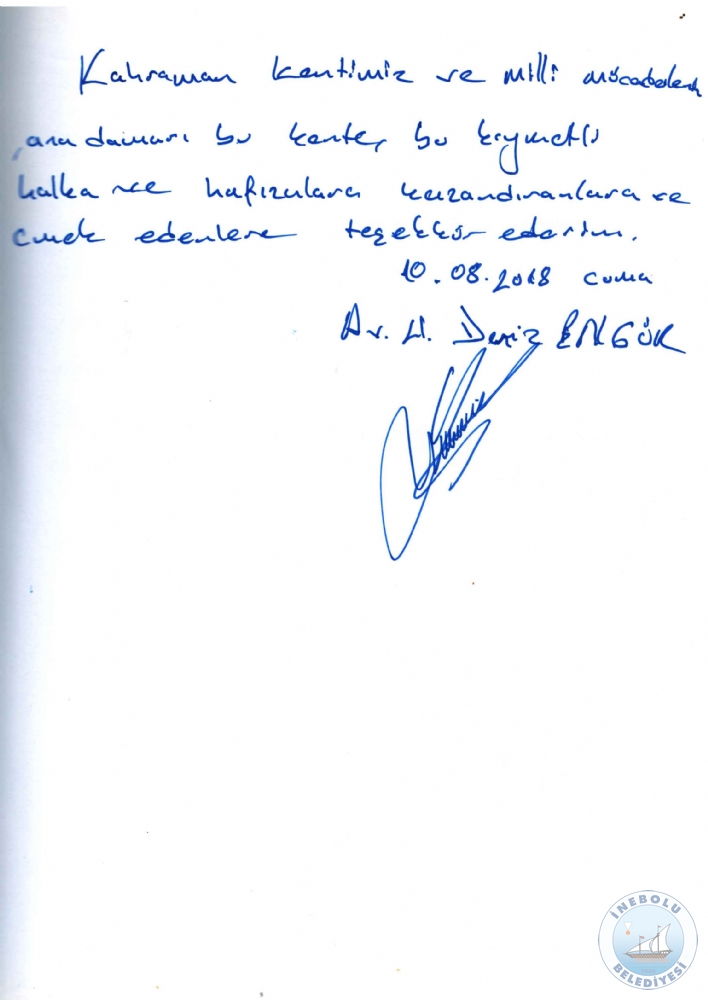 Kahraman kentimiz ve milli mücadelenin
ana damarı bu kente, bu kıymetli
halka ve hafızalara kazandıranlara ve
emek edenlere teşekkür ederim.
10.08.2018 cuma
Av. H. Deniz ENGÜR
İNEBOLU
BELEDİYESİ